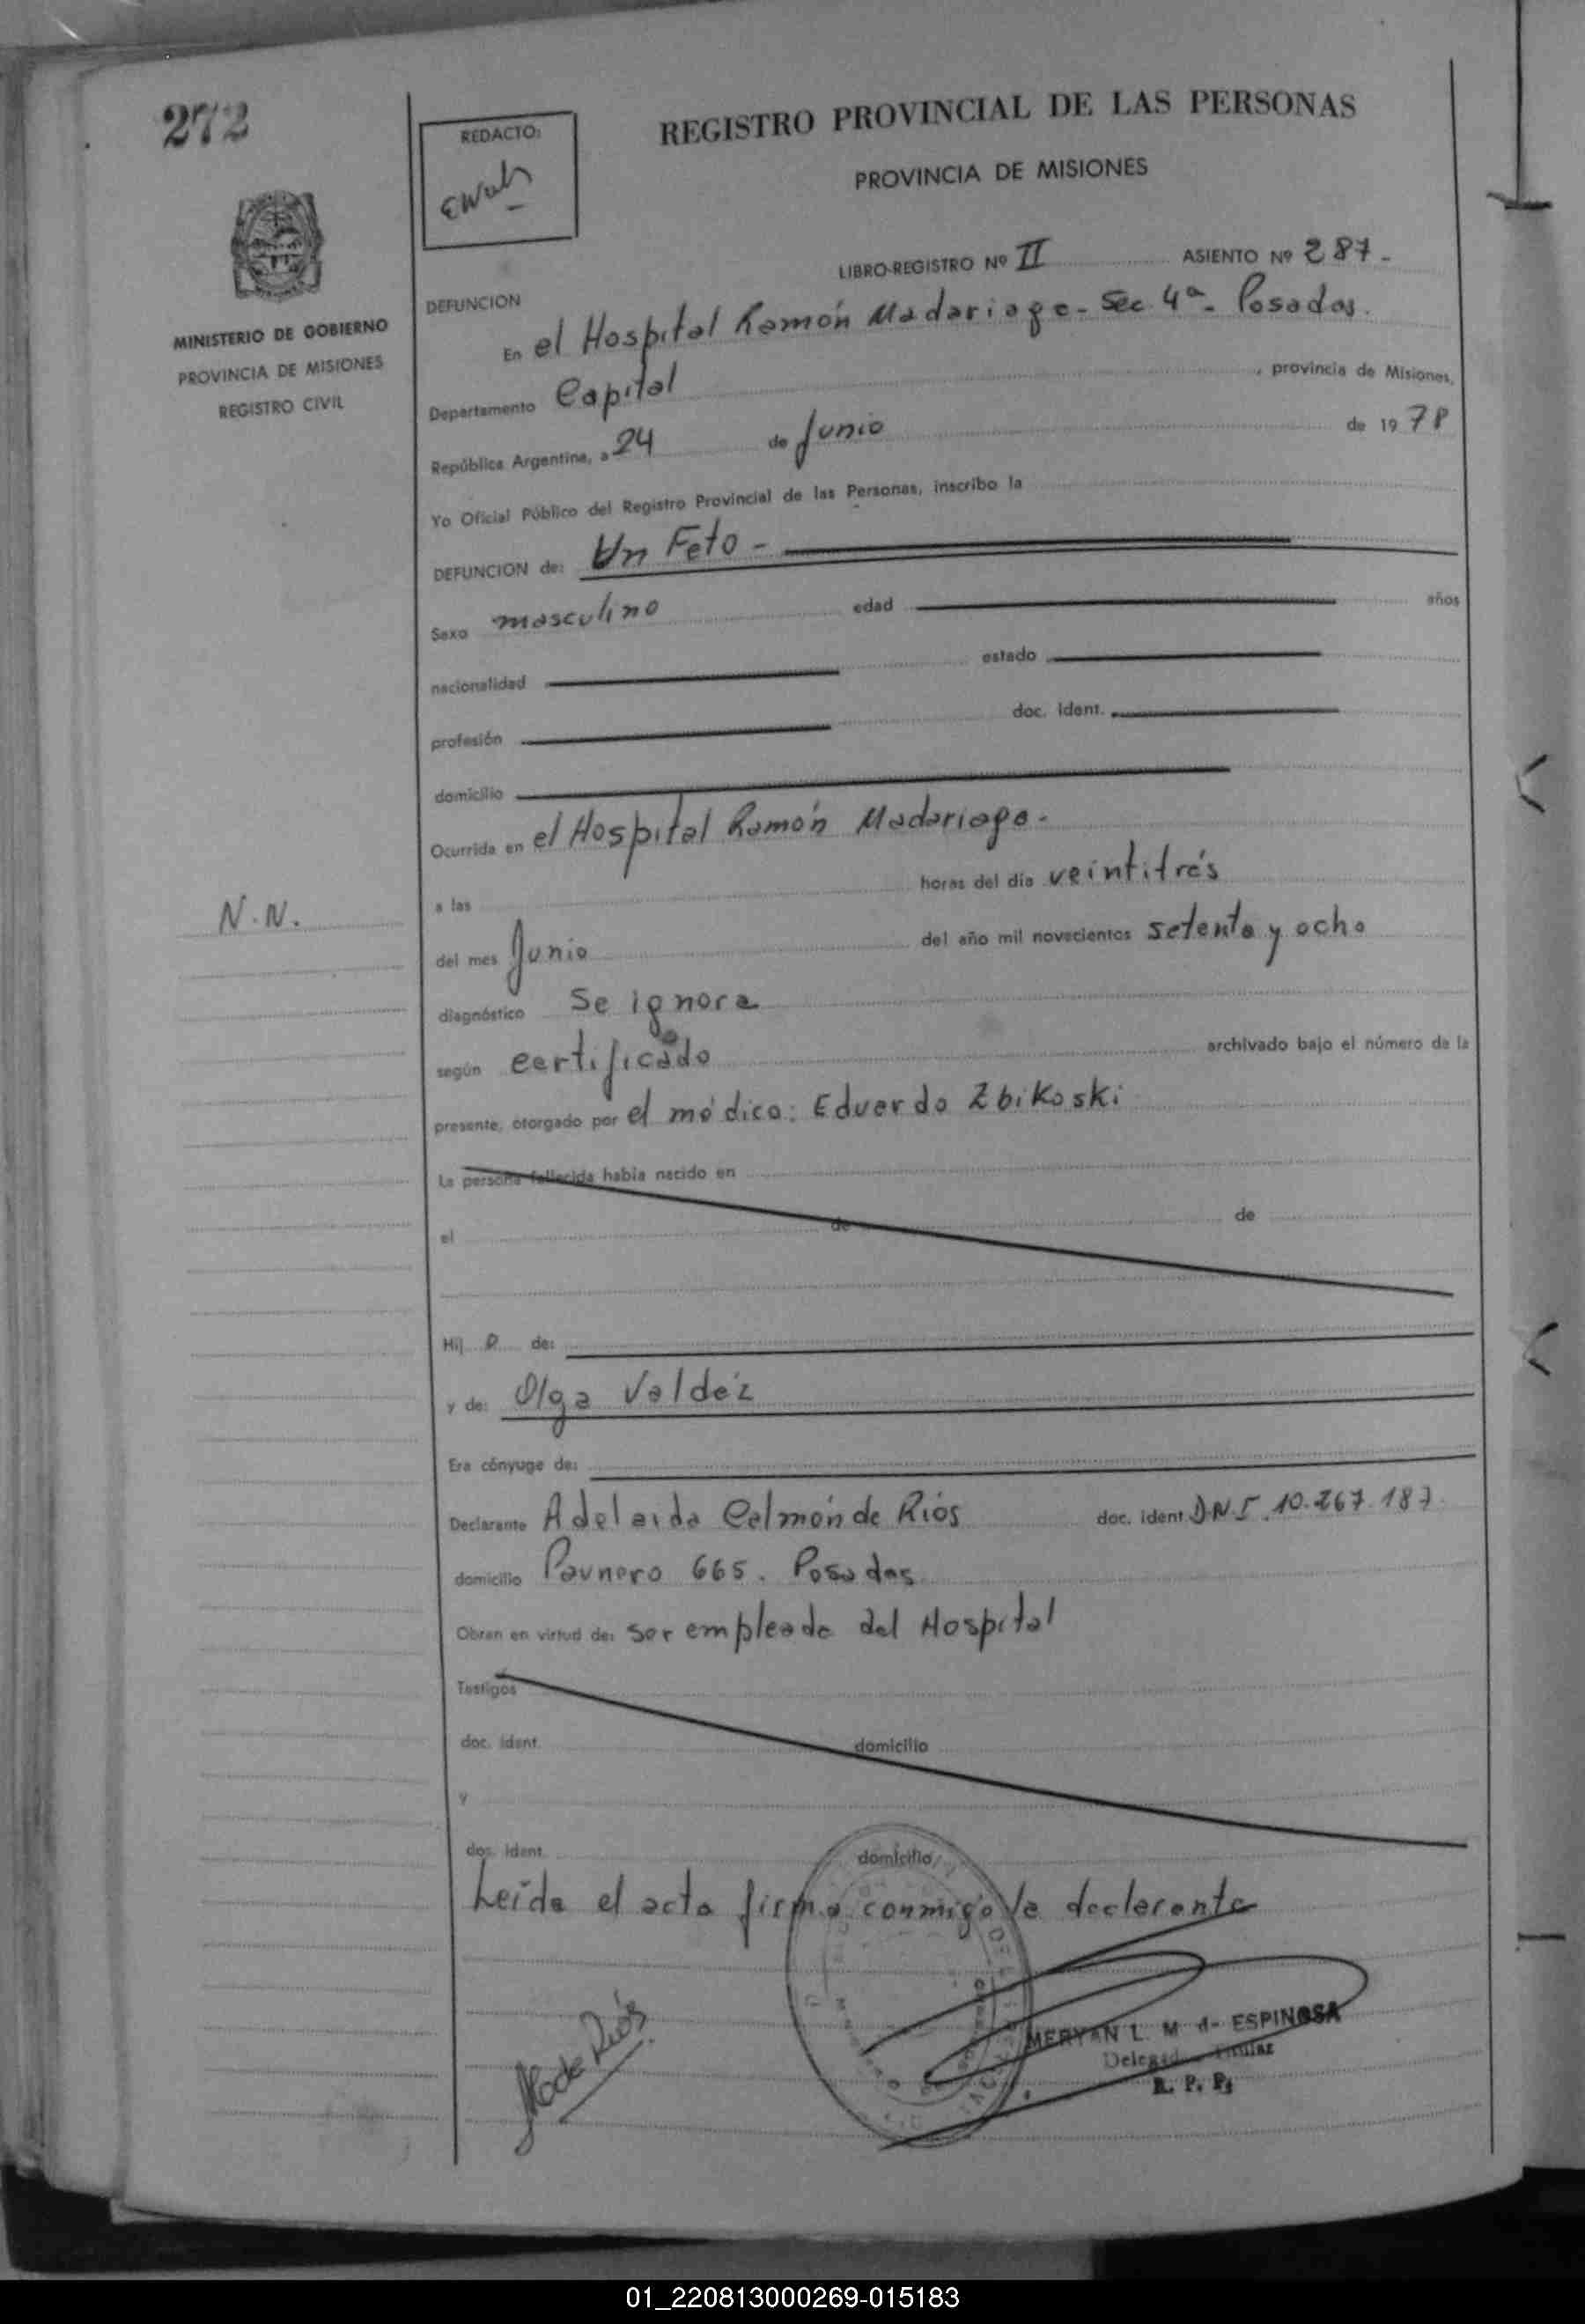 272
REDACTO:
REGISTRO PROVINCIAL DE LAS PERSONAS
PROVINCIA DE MISIONES
MINISTERIO DE GOBIERNO
PROVINCIA DE MISIONES
REGISTRO CIVIL
LIBRO-REGISTRO Nº II ASIENTO Nº 287-
DEFUNCION
En el Hospital Ramón Madariaga - Sec 4ª - Posadas.
Departamento Capital , provincia de Misiones,
República Argentina, a 24 de Junio de 1978
Yo Oficial Público del Registro Provincial de las Personas, inscribo la
DEFUNCION de: Un Feto -
Sexo masculino edad años
nacionalidad estado
profesión doc. ident.
domicilio
Ocurrida en el Hospital Ramón Madariaga -
a las horas del día veintitrés
N.N.
del mes Junio del año mil novecientos setenta y ocho
diagnóstico Se ignora
según certificado archivado bajo el número de la
presente, otorgado por el médico: Eduardo Zbikoski
La persona fallecida había nacido en
el de de
Hij o de:
y de: Olga Valdéz
Era cónyuge de:
Declarante Adelaida Celmón de Ríos doc. ident. D.N.I. 10.267.187.
domicilio Paunero 665. Posadas
Obran en virtud de: ser empleada del Hospital
Testigos
doc. ident. domicilio
y
doc. ident. domicilio
Leída el acta firma conmigo la declarante
de Ríos
MERYAN L. M de ESPINOSA
Delegada Titular
R. P. P.
01_220813000269-015183